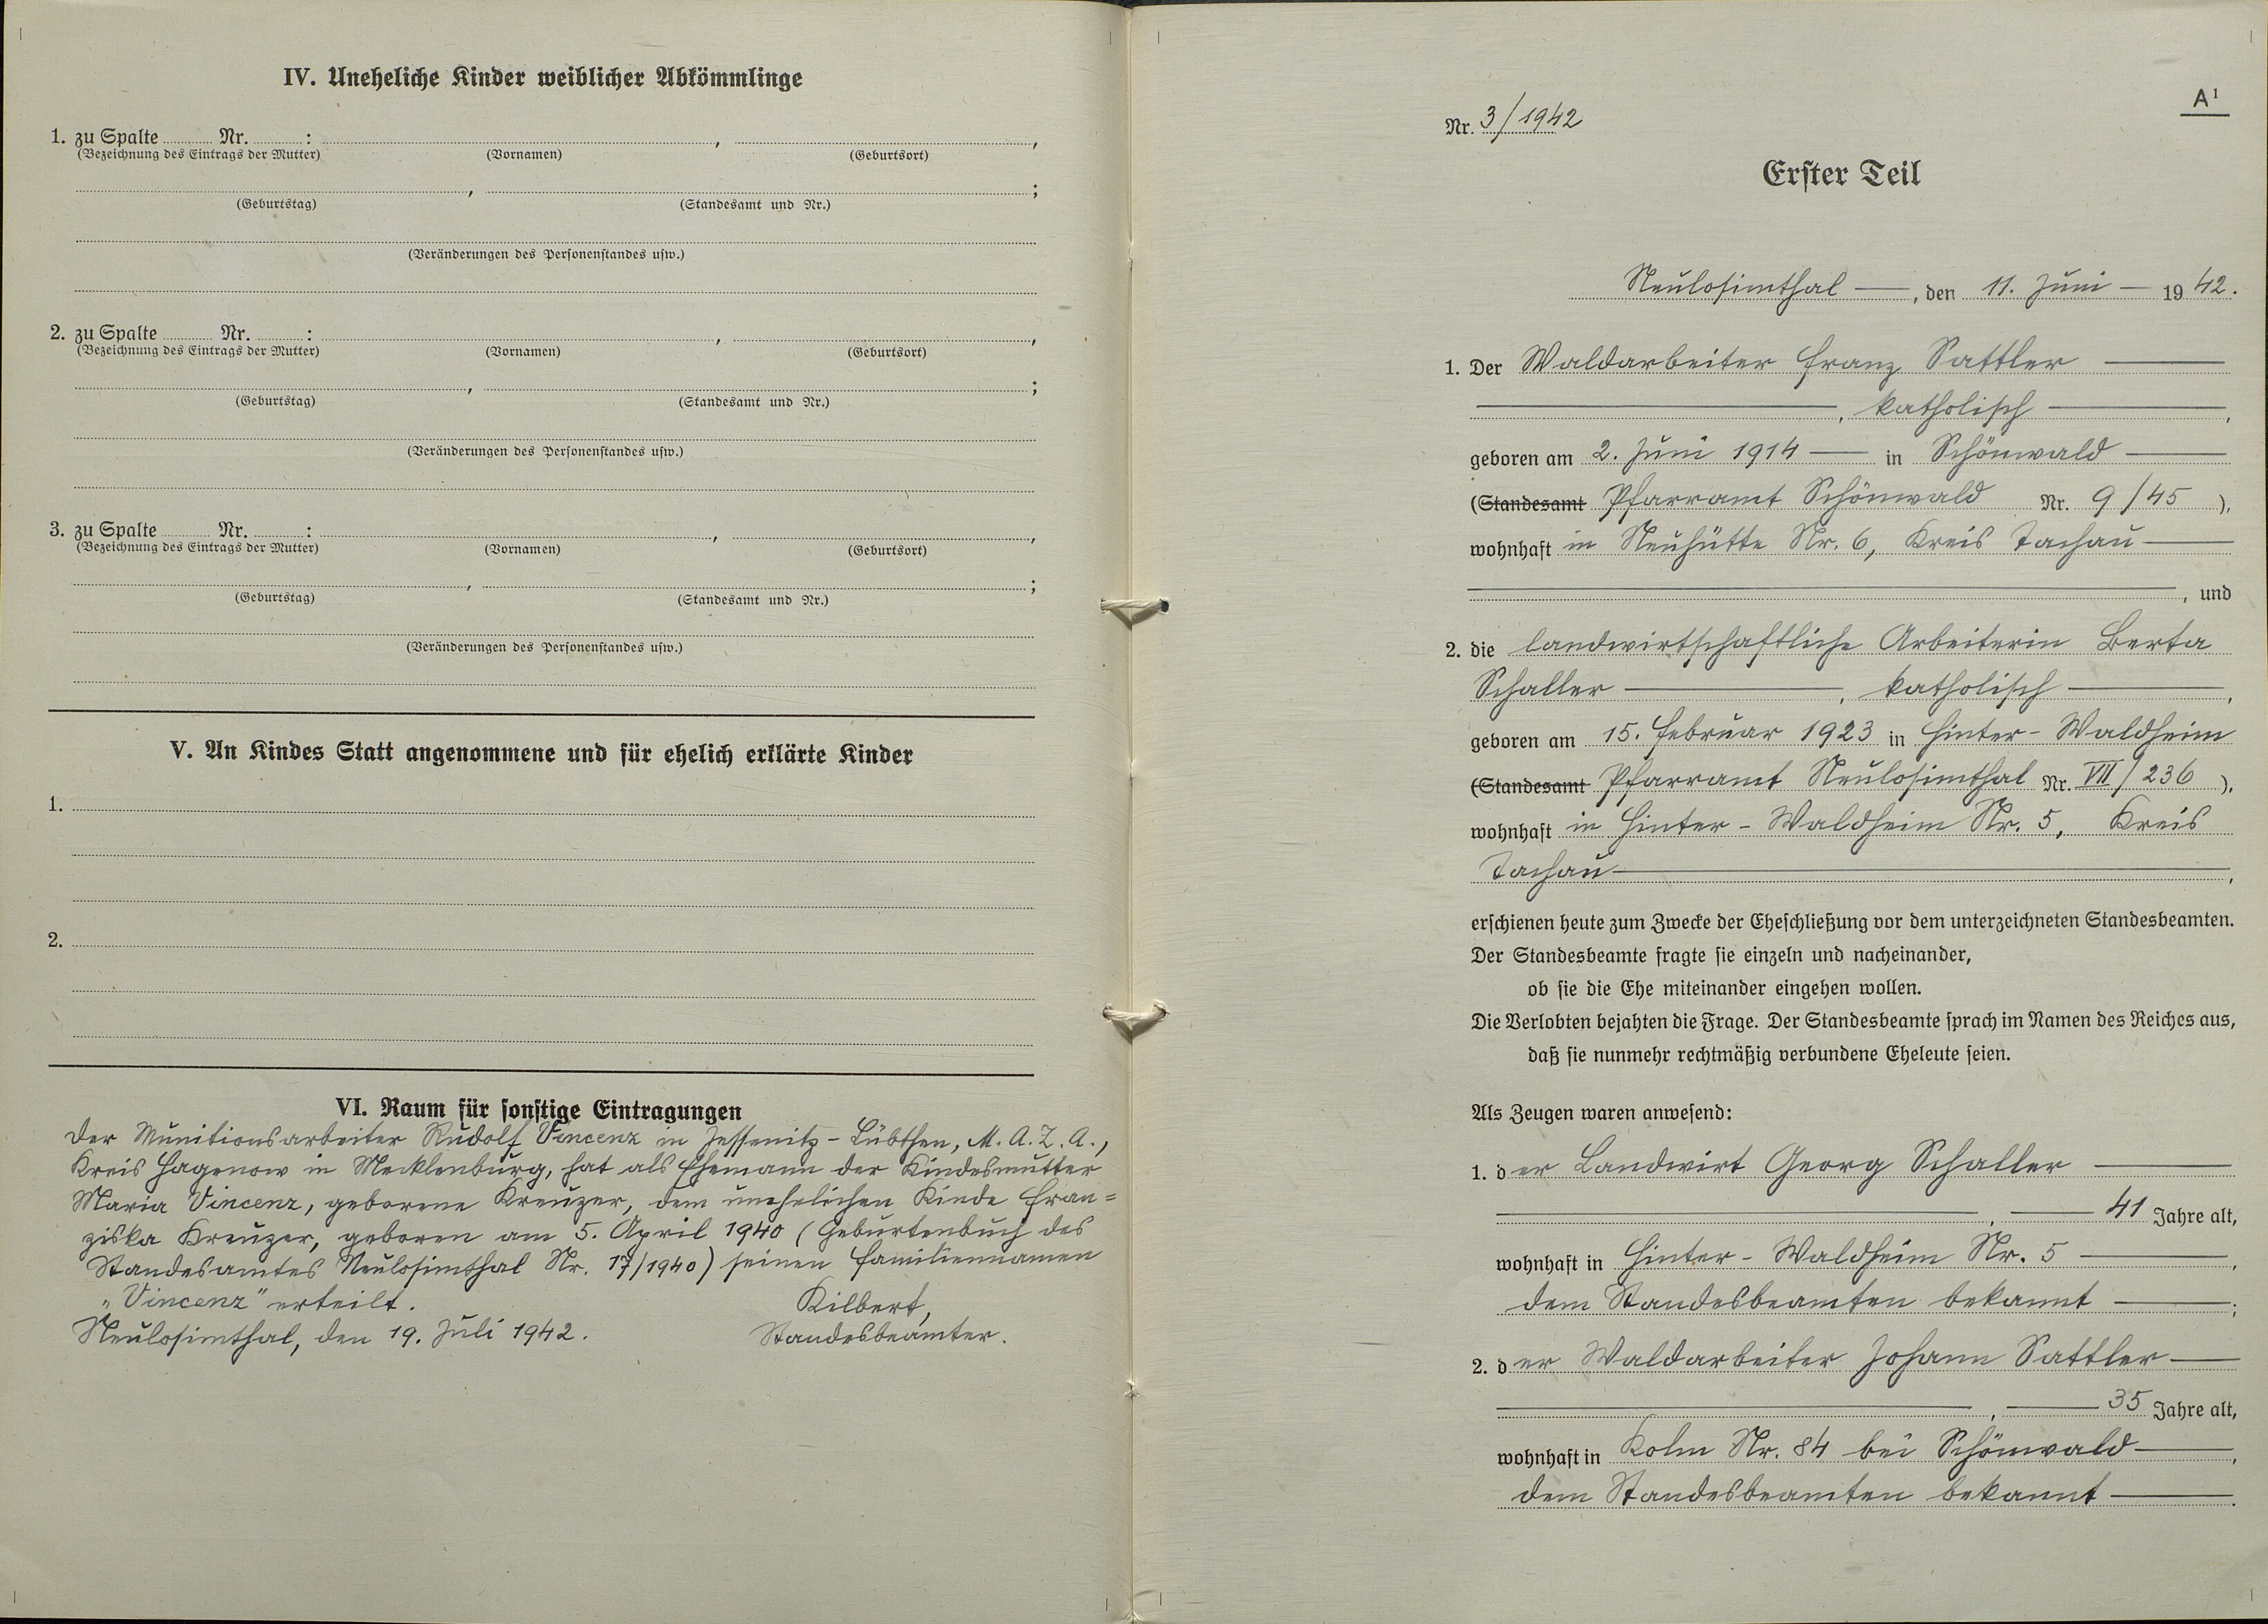 IV. Uneheliche Kinder weiblicher Abkömmlinge
1. zu Spalte ........ Nr. ........ : ........ , ........ ,
(Bezeichnung des Eintrags der Mutter) (Vornamen) (Geburtsort)
........ , ........ ;
(Geburtstag) (Standesamt und Nr.)
(Veränderungen des Personenstandes usw.)
2. zu Spalte ........ Nr. ........ : ........ , ........ ,
(Bezeichnung des Eintrags der Mutter) (Vornamen) (Geburtsort)
........ , ........ ;
(Geburtstag) (Standesamt und Nr.)
(Veränderungen des Personenstandes usw.)
3. zu Spalte ........ Nr. ........ : ........ , ........ ,
(Bezeichnung des Eintrags der Mutter) (Vornamen) (Geburtsort)
........ , ........ ;
(Geburtstag) (Standesamt und Nr.)
(Veränderungen des Personenstandes usw.)
V. An Kindes Statt angenommene und für ehelich erklärte Kinder
1.
2.
VI. Raum für sonstige Eintragungen
Der Munitionsarbeiter Rudolf Vincenz in Jessenitz-Lübthen, M.A.Z.A.,
Kreis Hagenow in Mecklenburg, hat als Ehemann der Kindesmutter
Maria Vincenz, geborene Kreuzer, dem unehelichen Kinde Fran=
ziska Kreuzer, geboren am 5. April 1940 (Geburtenbuch des
Standesamtes Neulosimthal Nr. 17/1940) seinen Familiennamen
"Vincenz" erteilt. Kilbert,
Neulosimthal, den 19. Juli 1942. Standesbeamter.
A¹
Nr. 3/1942
Erster Teil
Neulosimthal —, den 11. Juni — 1942.
1. Der Waldarbeiter Franz Sattler —
—, katholisch —,
geboren am 2. Juni 1914 — in Schönwald —
(Standesamt Pfarramt Schönwald Nr. 9/45 ),
wohnhaft in Neuhütte Nr. 6, Kreis Tachau —
—, und
2. die landwirtschaftliche Arbeiterin Berta
Schaller —, katholisch —,
geboren am 15. Februar 1923 in Hinter-Waldheim
(Standesamt Pfarramt Neulosimthal Nr. VII/236 ),
wohnhaft in Hinter-Waldheim Nr. 5, Kreis
Tachau —,
erschienen heute zum Zwecke der Eheschließung vor dem unterzeichneten Standesbeamten.
Der Standesbeamte fragte sie einzeln und nacheinander,
ob sie die Ehe miteinander eingehen wollen.
Die Verlobten bejahten die Frage. Der Standesbeamte sprach im Namen des Reiches aus,
daß sie nunmehr rechtmäßig verbundene Eheleute seien.
Als Zeugen waren anwesend:
1. der Landwirt Georg Schaller —
—, — 41 Jahre alt,
wohnhaft in Hinter-Waldheim Nr. 5 —,
dem Standesbeamten bekannt —;
2. der Waldarbeiter Johann Sattler —
—, — 35 Jahre alt,
wohnhaft in Kolm Nr. 84 bei Schönwald —,
dem Standesbeamten bekannt —.